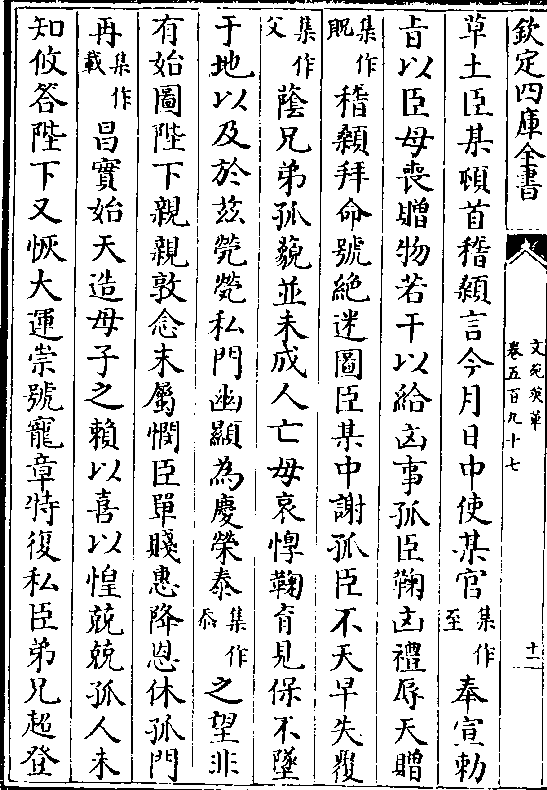 欽定四庫全書
文苑英華
卷五百九十七
十一
草土臣某頓首稽顙言今月日中使某官集作至奉宣勅
旨以臣母喪贈物若干以給凶事孤臣鞠凶禮辱天贈
集作貺稽顙拜命號絶迷圖臣某中謝孤臣不天早失覆
集作父蔭兄弟孤藐並未成人亡母哀惸鞠育見保不墜
于地以及於兹煢煢私門幽顯為慶榮泰集作忝之望非
有始圖陛下親親敦念末屬憫臣單賤惠降恩休孤門
再集作載昌實始天造母子之賴以喜以惶兢兢孤人未
知攸答陛下又恢大運崇號寵章特復私臣弟兄超登